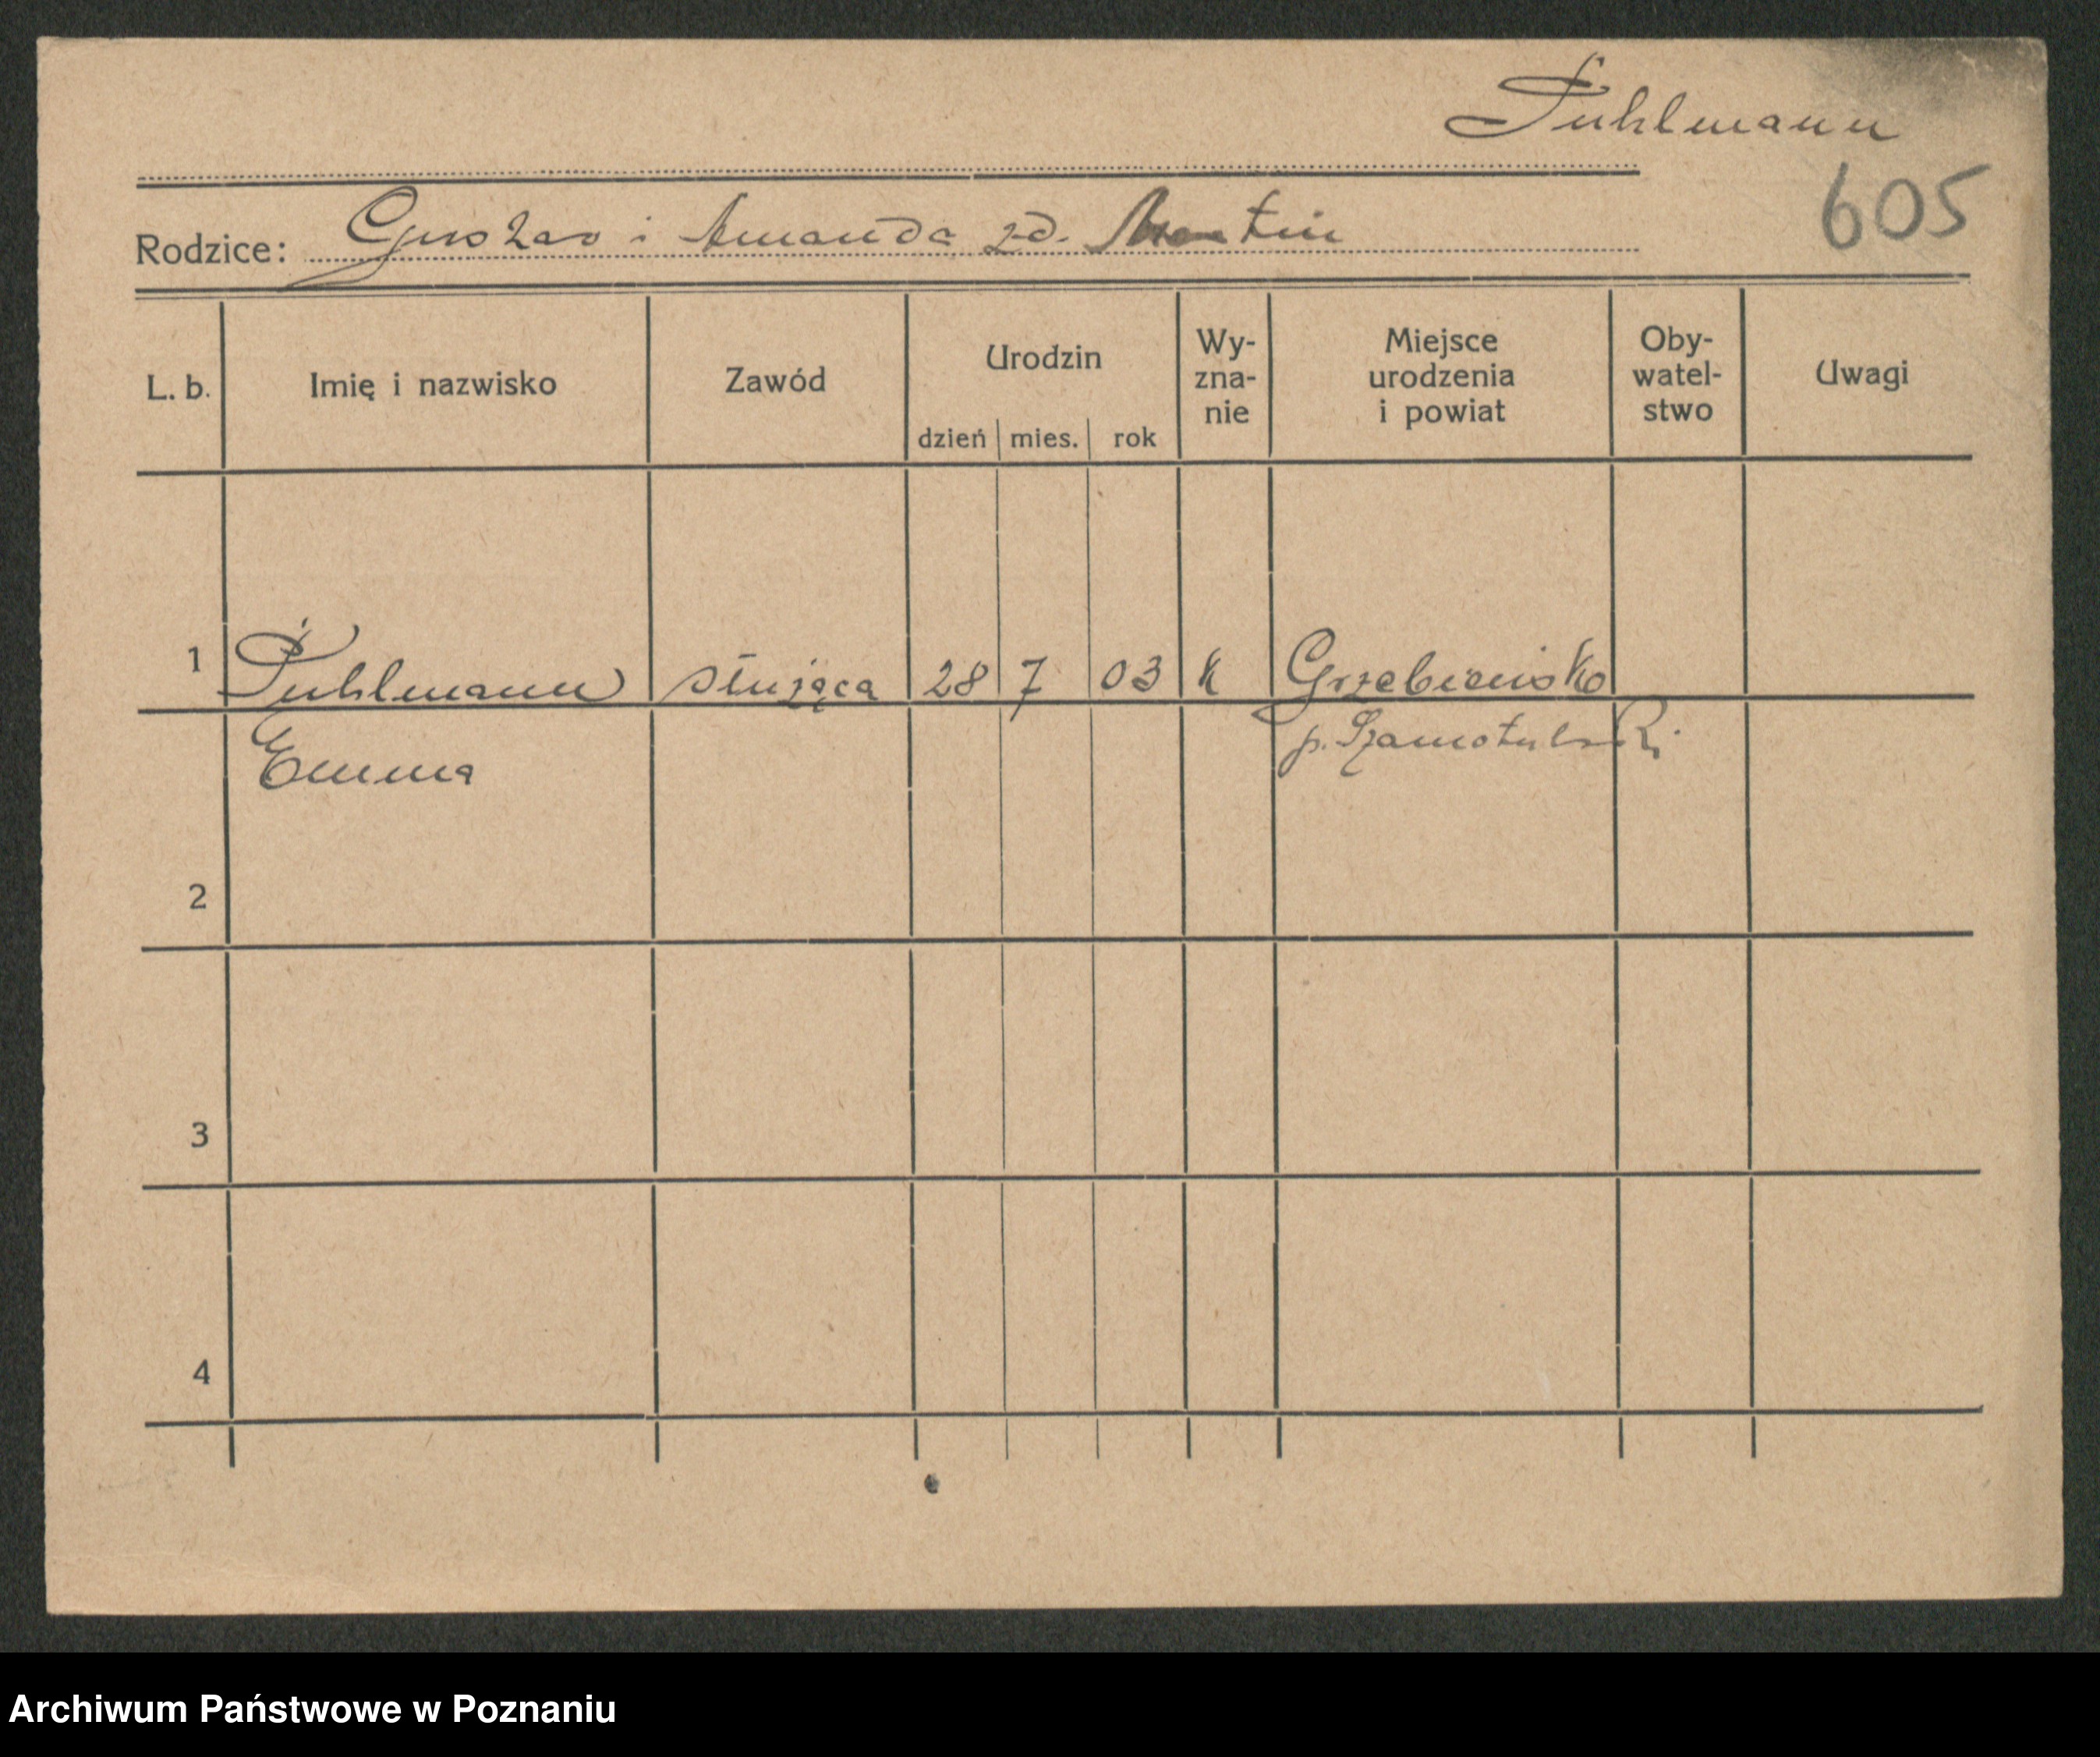 Puhlmann
605
Rodzice: Gustav i Amanda zd. Martin
L. b. Imię i nazwisko Zawód Urodzin dzień mies. rok Wy-zna-nie Miejsce urodzenia i powiat Oby-watel-stwo Uwagi
1 Puhlmann służąca 28 7 03 k Grzebienisko
Emma p. Szamotulski
2
3
4
Archiwum Państwowe w Poznaniu